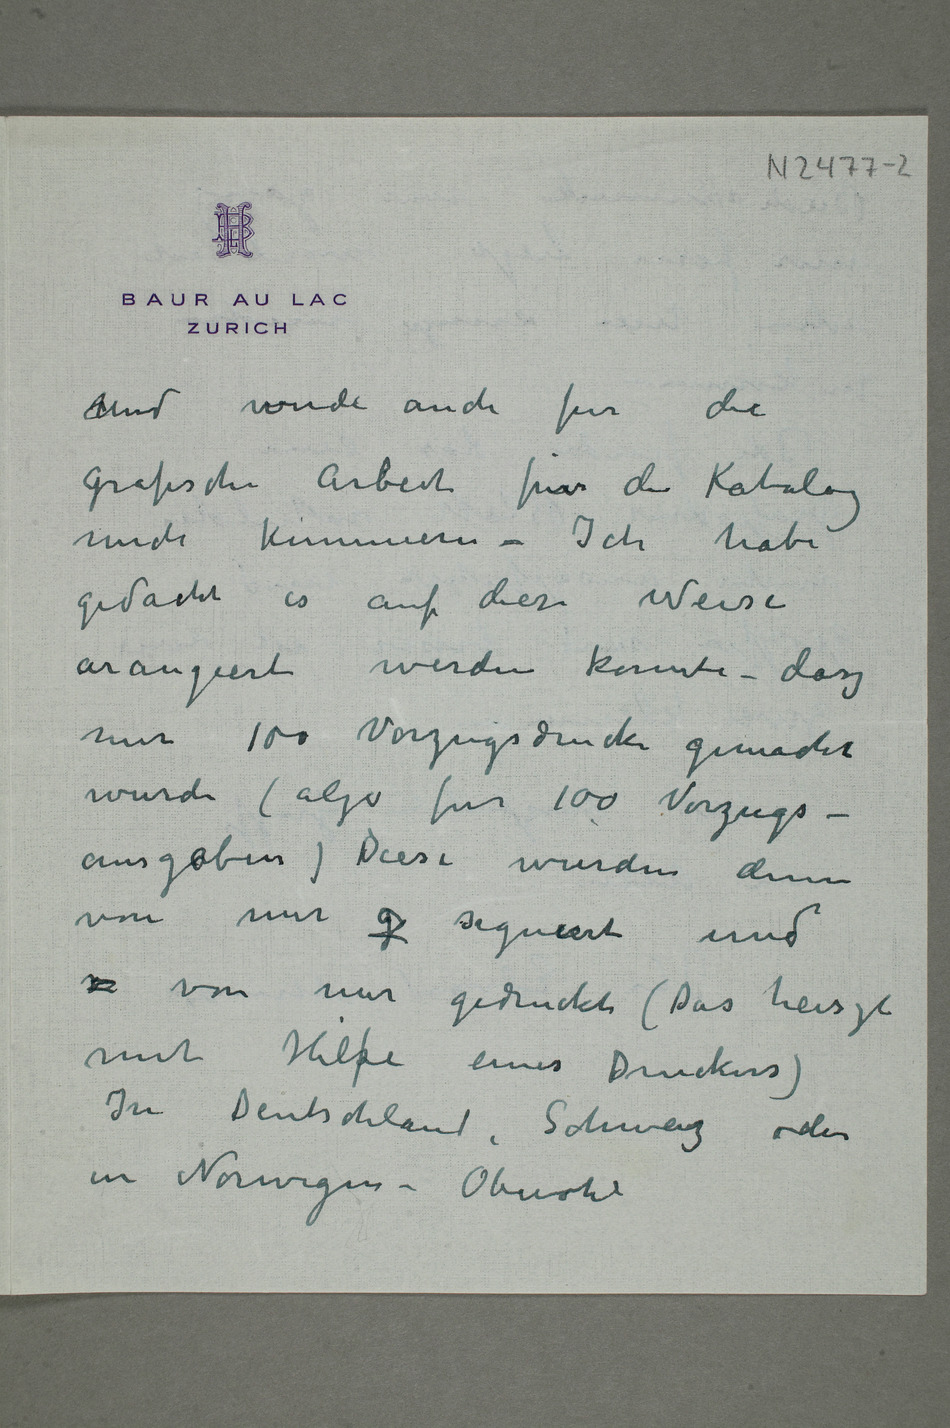 N 2477-2
BAUR AU LAC
ZURICH
und wurde auch für die
grafische Arbeit für den Katalog
mich kümmern – Ich habe
gedacht es auf diese Weise
arangiert werden konnte – dasz
nur 100 Vorzugsdrucke gemacht
wurde (also für 100 Vorzugs-
ausgaben) Diese würden dann
von mir signiert und
von mir gedruckt (Das heiszt
mit Hilfe eines Druckers)
In Deutschland, Schweiz oder
in Norwegen – Obwohl